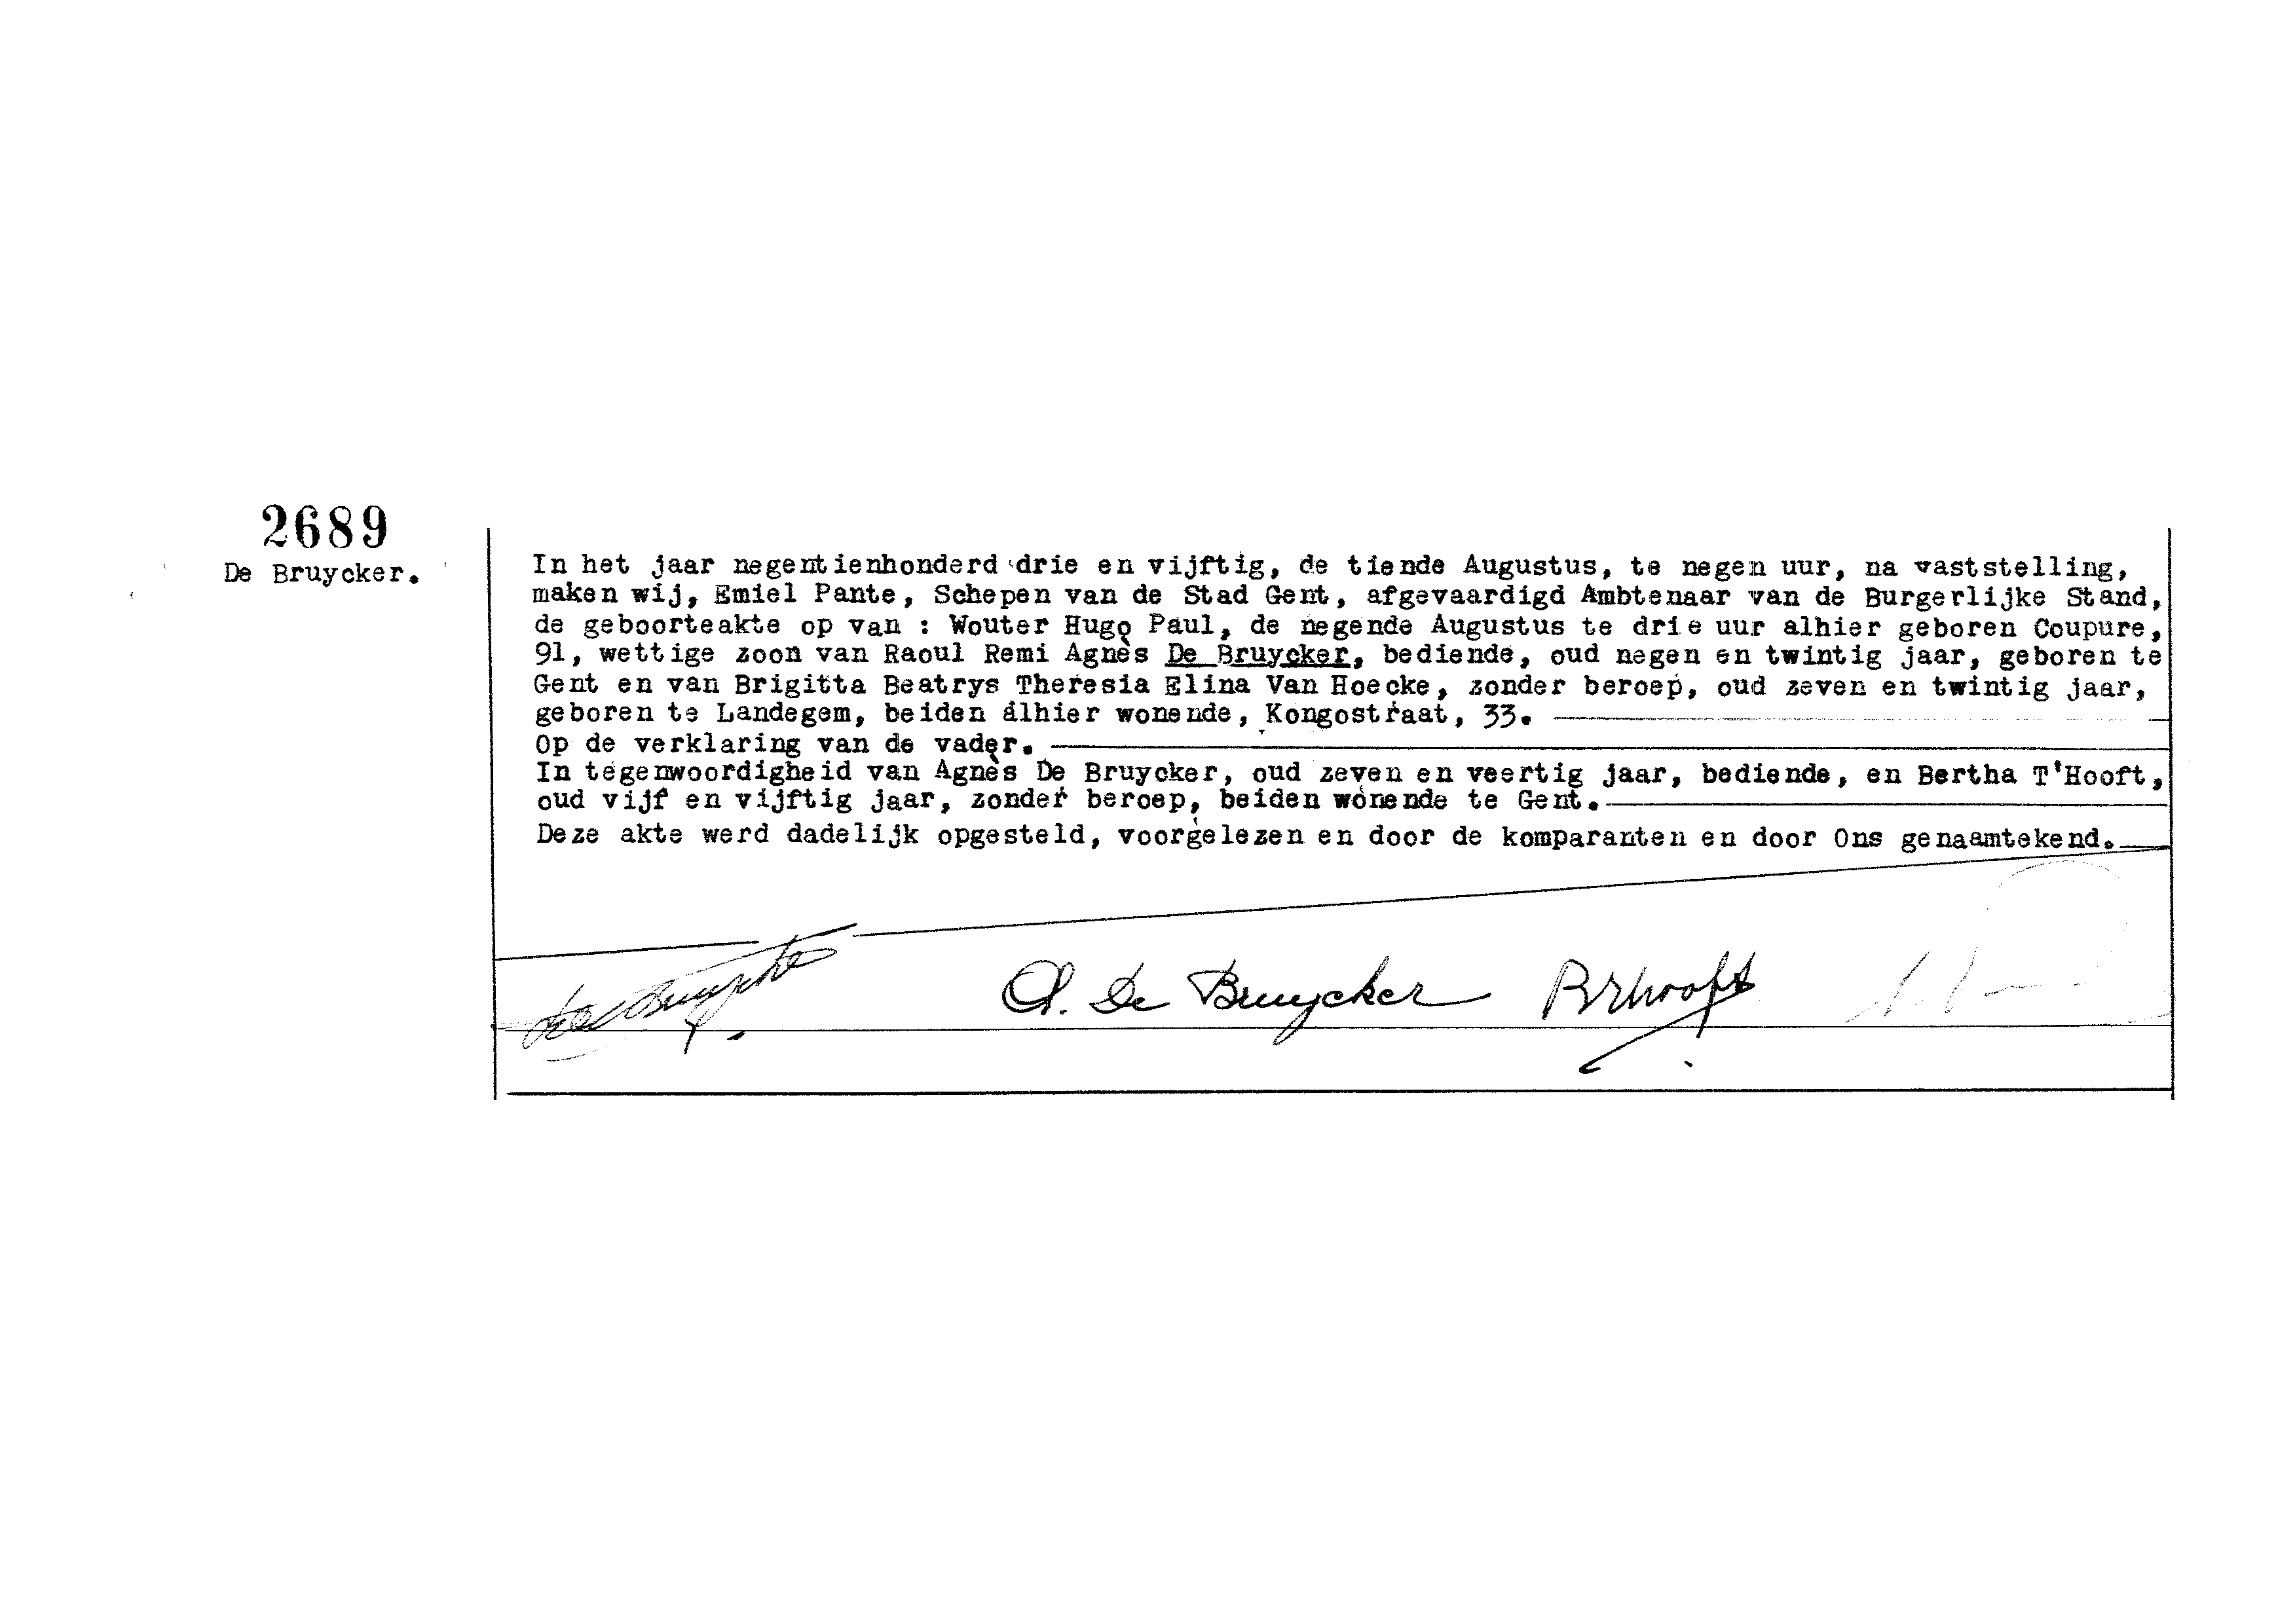 2689
De Bruycker.
In het jaar negentienhonderd drie en vijftig, de tiende Augustus, te negen uur, na vaststelling,
maken wij, Emiel Pante, Schepen van de Stad Gent, afgevaardigd Ambtenaar van de Burgerlijke Stand,
de geboorteakte op van : Wouter Hugo Paul, de negende Augustus te drie uur alhier geboren Coupure,
91, wettige zoon van Raoul Remi Agnès De Bruycker, bediende, oud negen en twintig jaar, geboren te
Gent en van Brigitta Beatrys Theresia Elina Van Hoecke, zonder beroep, oud zeven en twintig jaar,
geboren te Landegem, beiden alhier wonende, Kongostraat, 33.
Op de verklaring van de vader.
In tegenwoordigheid van Agnès De Bruycker, oud zeven en veertig jaar, bediende, en Bertha T'Hooft,
oud vijf en vijftig jaar, zonder beroep, beiden wonende te Gent.
Deze akte werd dadelijk opgesteld, voorgelezen en door de komparanten en door Ons genaamtekend.
A. De Bruycker